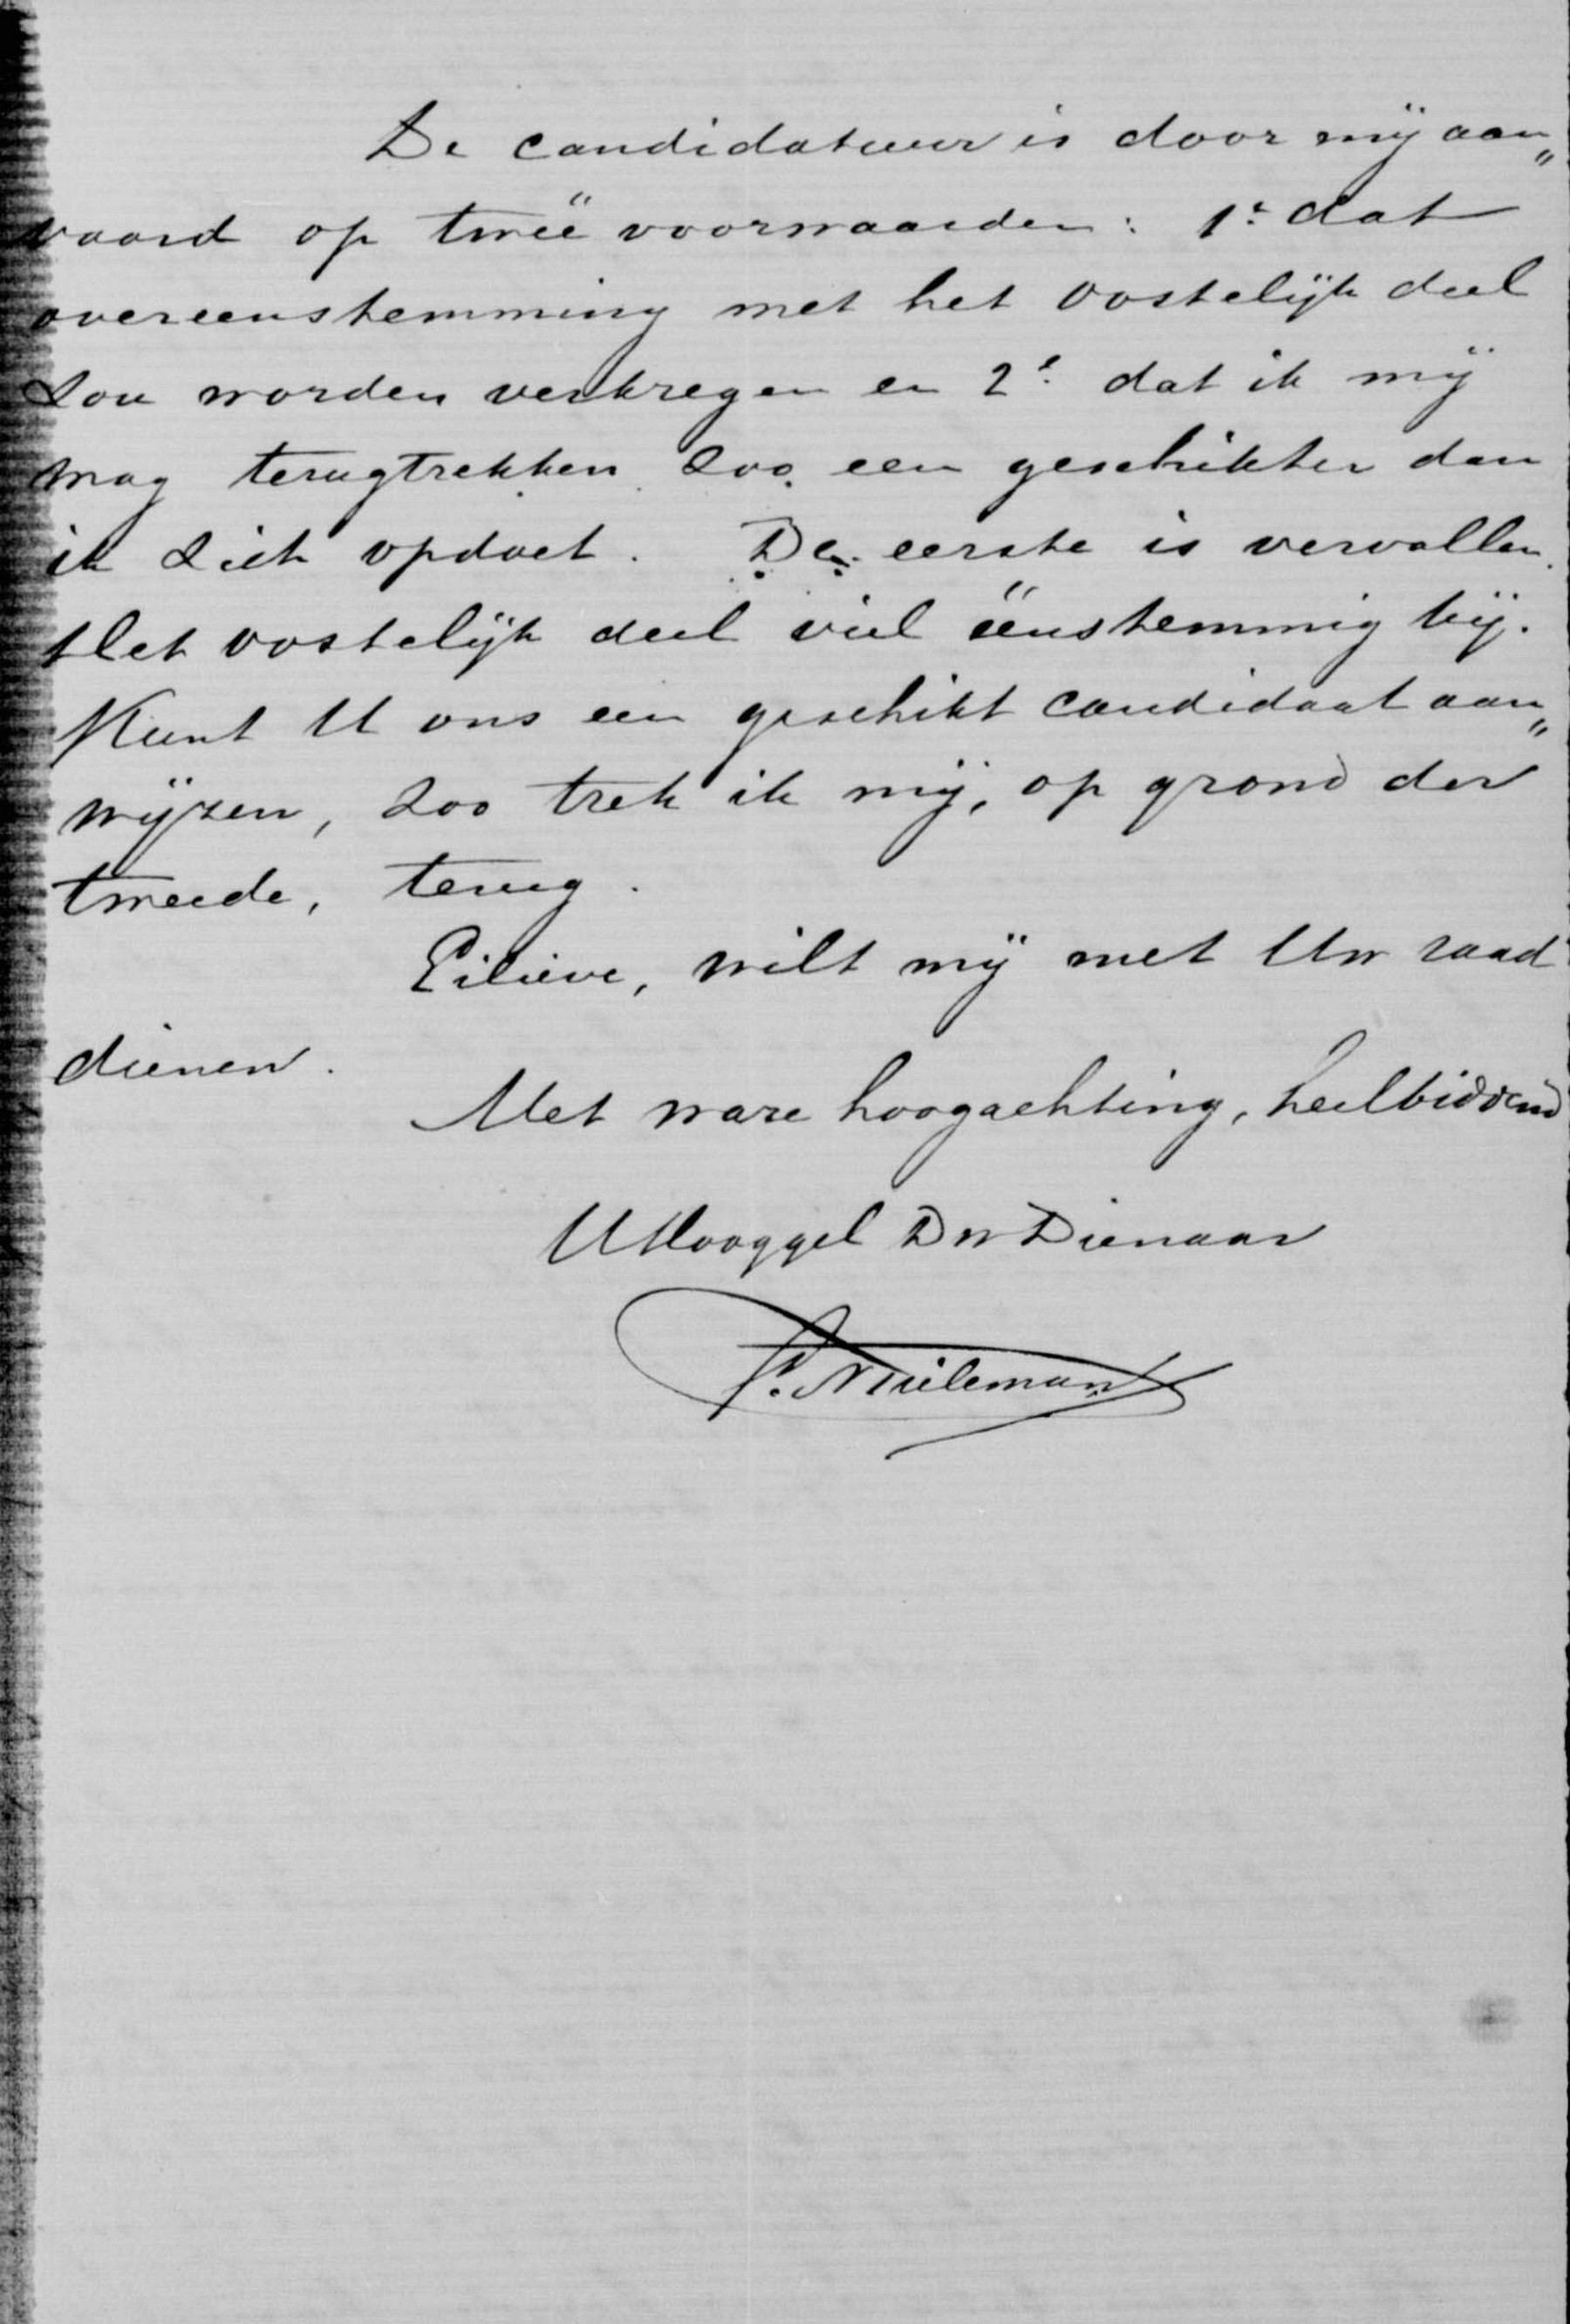 De candidatuur is door mij aan„
vaard op twéé voorwaarden: 1e dat
overeenstemming met het oostelijk deel
zou worden verkregen en 2e dat ik mij
mag terugtrekken zoo een geschikter dan
ik zich opdoet. De eerste is vervallen.
Het oostelijk deel viel éénstemmig bij.
Kunt U ons een geschikt candidaat aan„
wijzen, zoo trek ik mij, op grond der
tweede, terug.
Eilieve, wilt mij met Uw raad
dienen.
Met ware hoogachting, heilbiddend
UHooggel Dw Dienaar